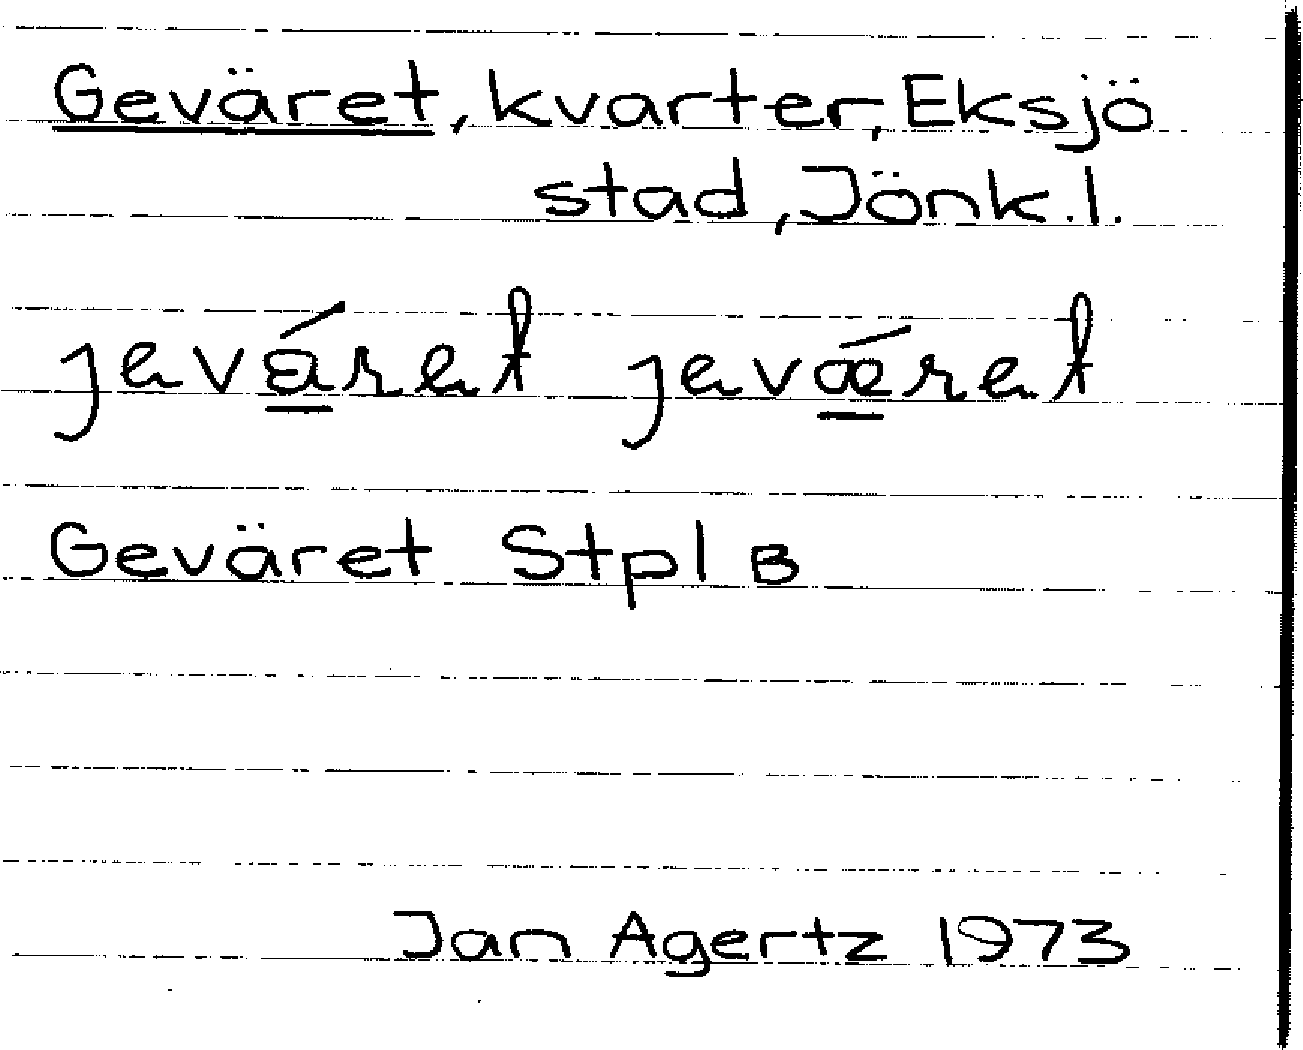 Geväret, kvarter, Eksjö
stad, Jönk.l.
jevä́ret jevǽret
Geväret Stpl B
Jan Agertz 1973